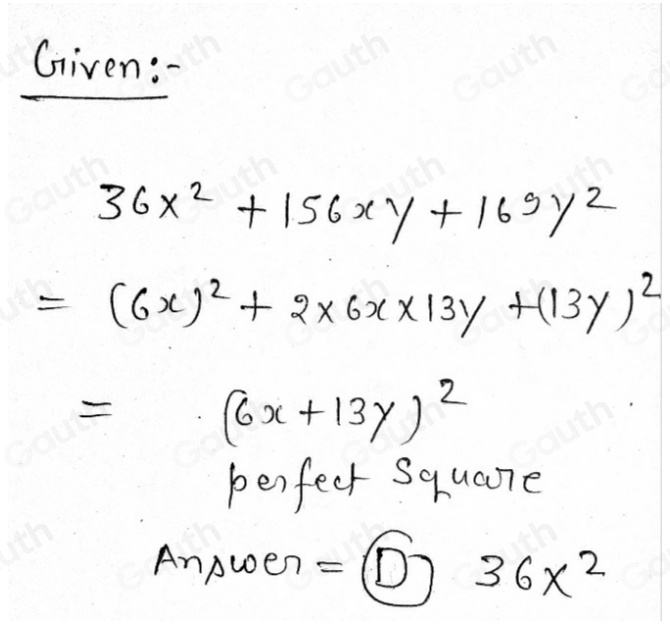 Given:-
36x² + 156xy + 169y²
= (6x)² + 2×6x×13y + (13y)²
= (6x + 13y)²
perfect Square
Answer = D 36x²